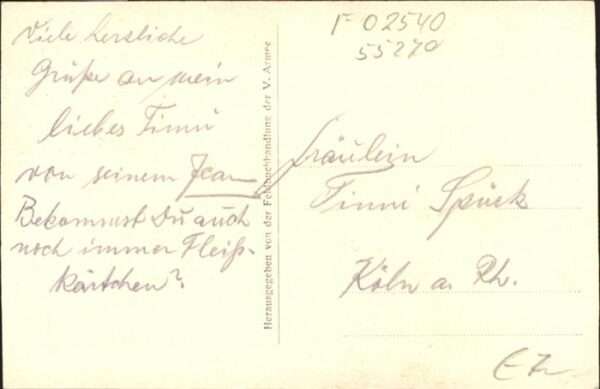 Viele herzliche
Grüße an mein
liebes Tinni
von seinem Jean
Bekommst Du auch
noch immer Fleiß-
kärtchen?
Herausgegeben von der Feldbuchhandlung der V. Armee
F 02540
55270
Fräulein
Tinni Spück
Köln a. Rh.